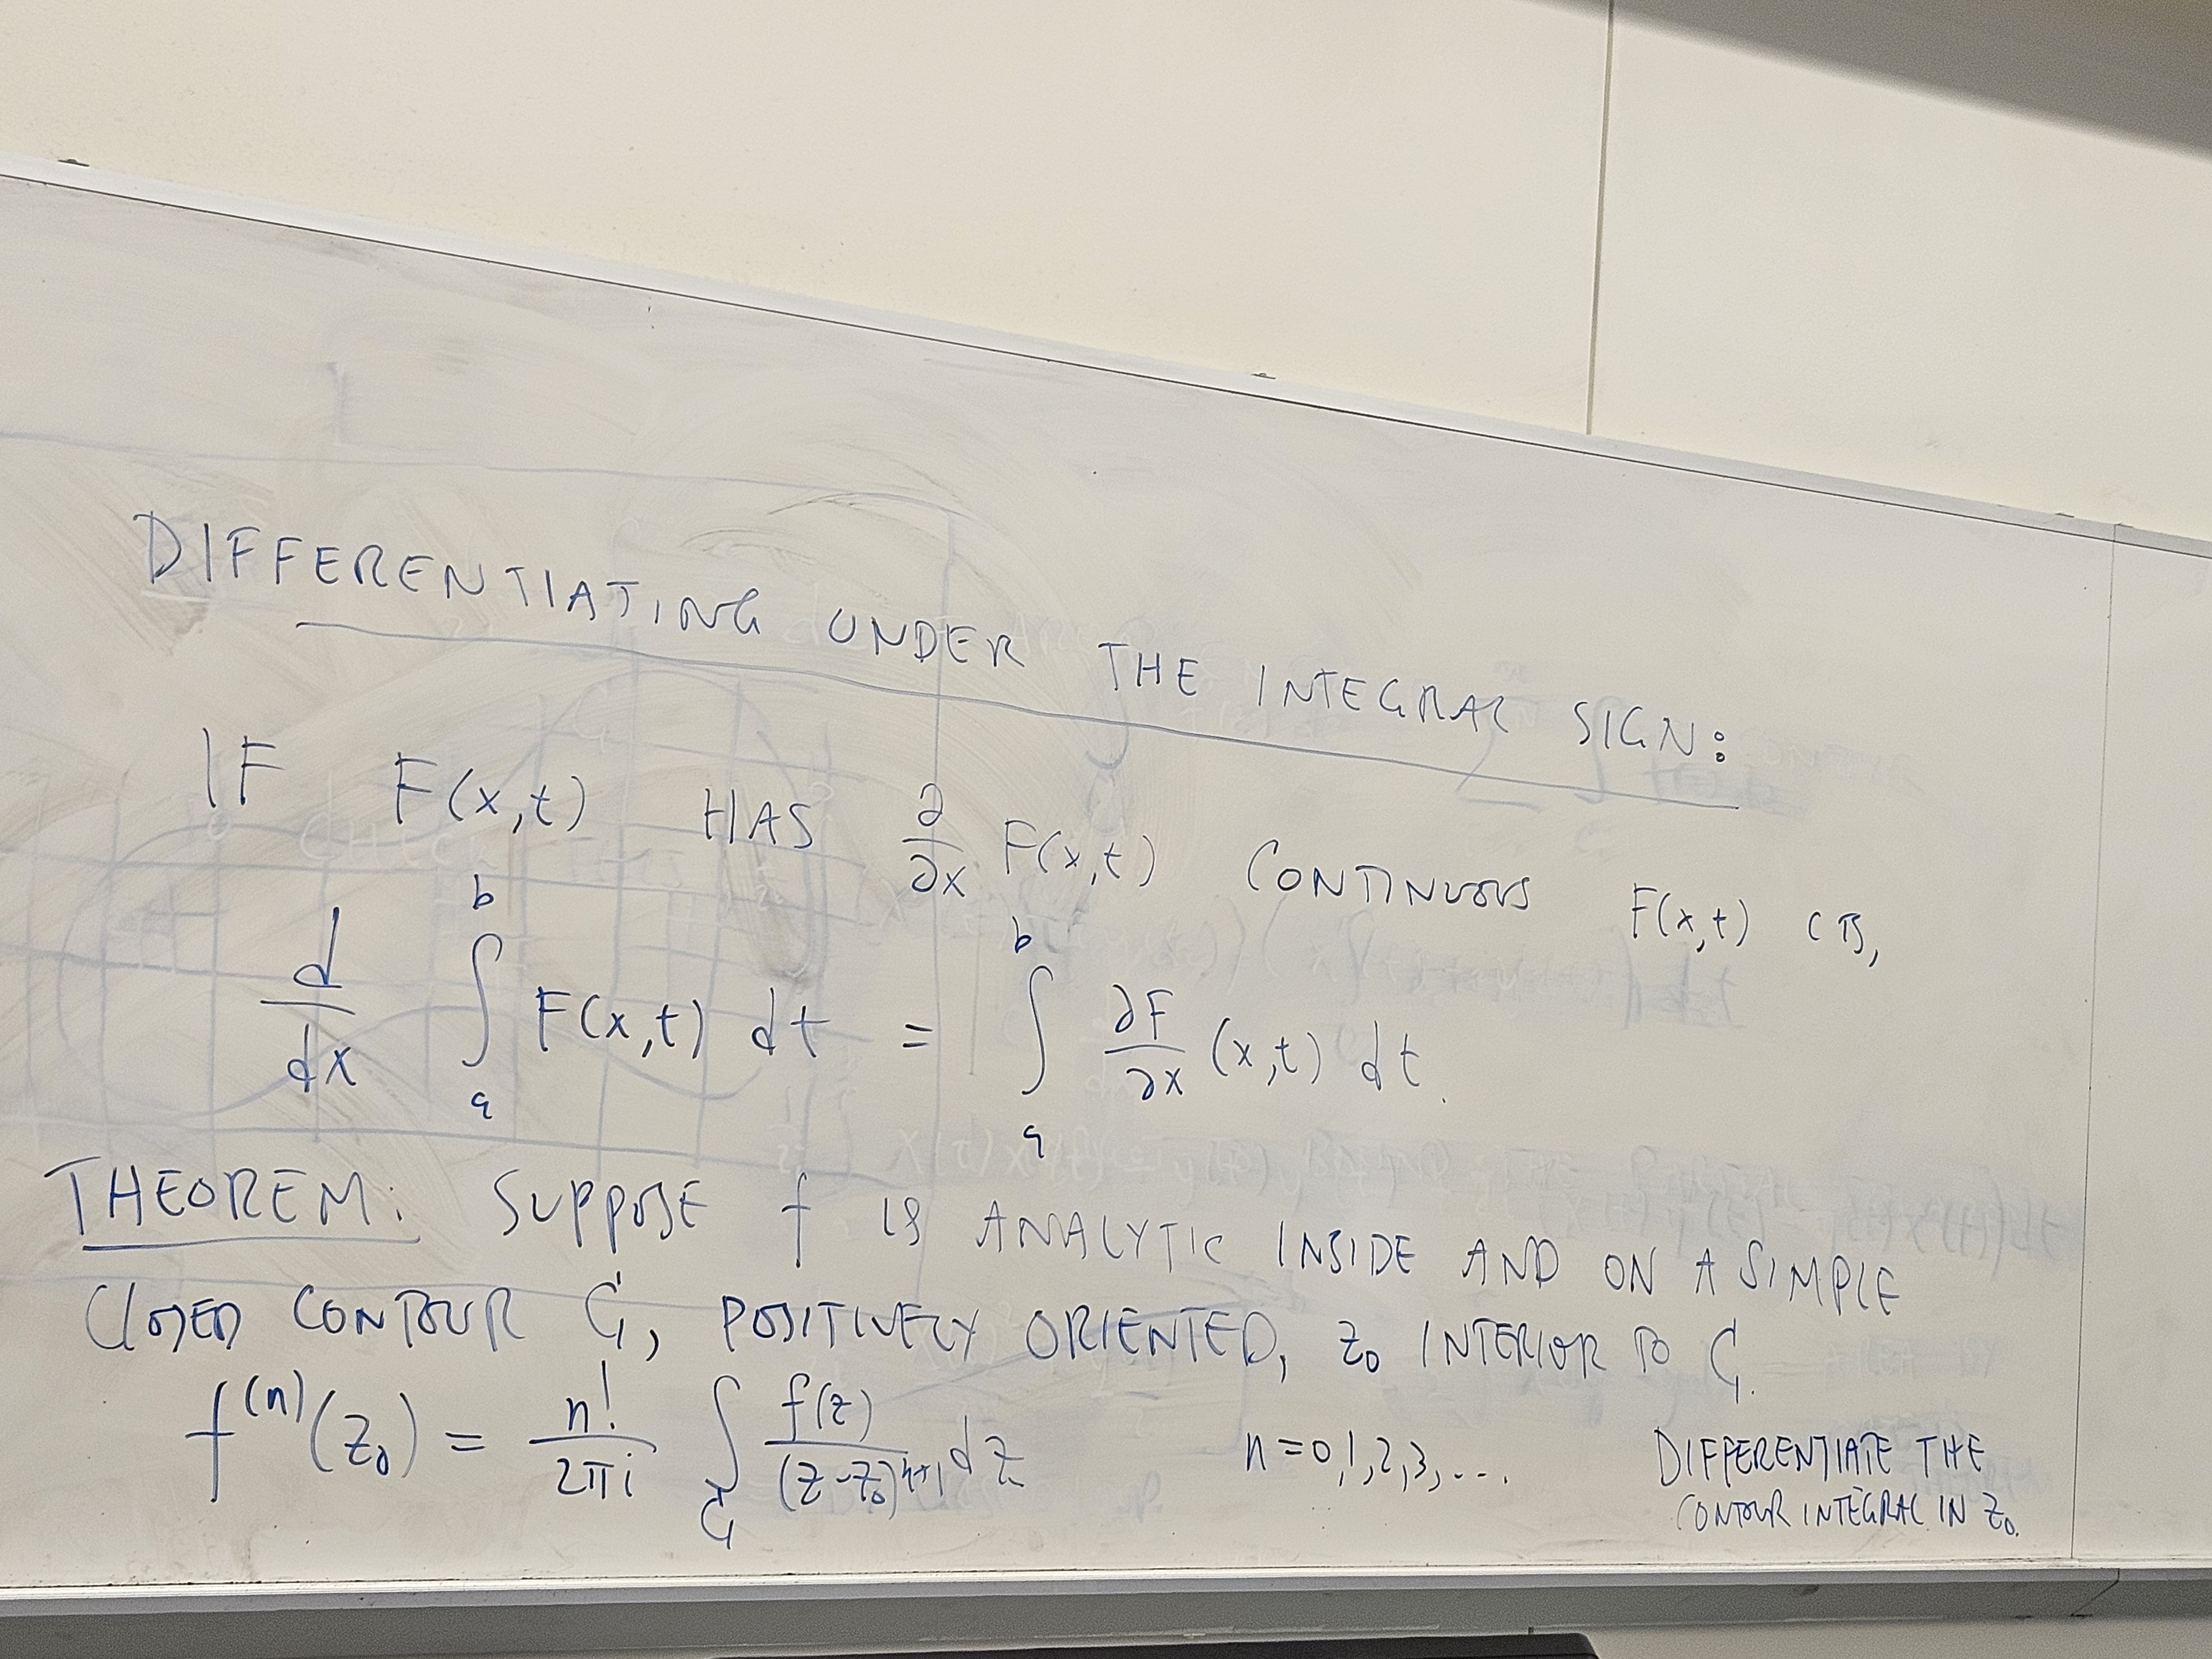 DIFFERENTIATING UNDER THE INTEGRAL SIGN:
IF F(x,t) HAS ∂/∂x F(x,t) CONTINUOUS F(x,t) CTS,
d/dx ∫_a^b F(x,t) dt = ∫_a^b ∂F/∂x (x,t) dt.
THEOREM: SUPPOSE f IS ANALYTIC INSIDE AND ON A SIMPLE
CLOSED CONTOUR C, POSITIVELY ORIENTED, z₀ INTERIOR TO C.
f^(n)(z₀) = n!/2πi ∫_C f(z)/(z-z₀)^(n+1) dz n=0,1,2,3,... DIFFERENTIATE THE
CONTOUR INTEGRAL IN z₀.